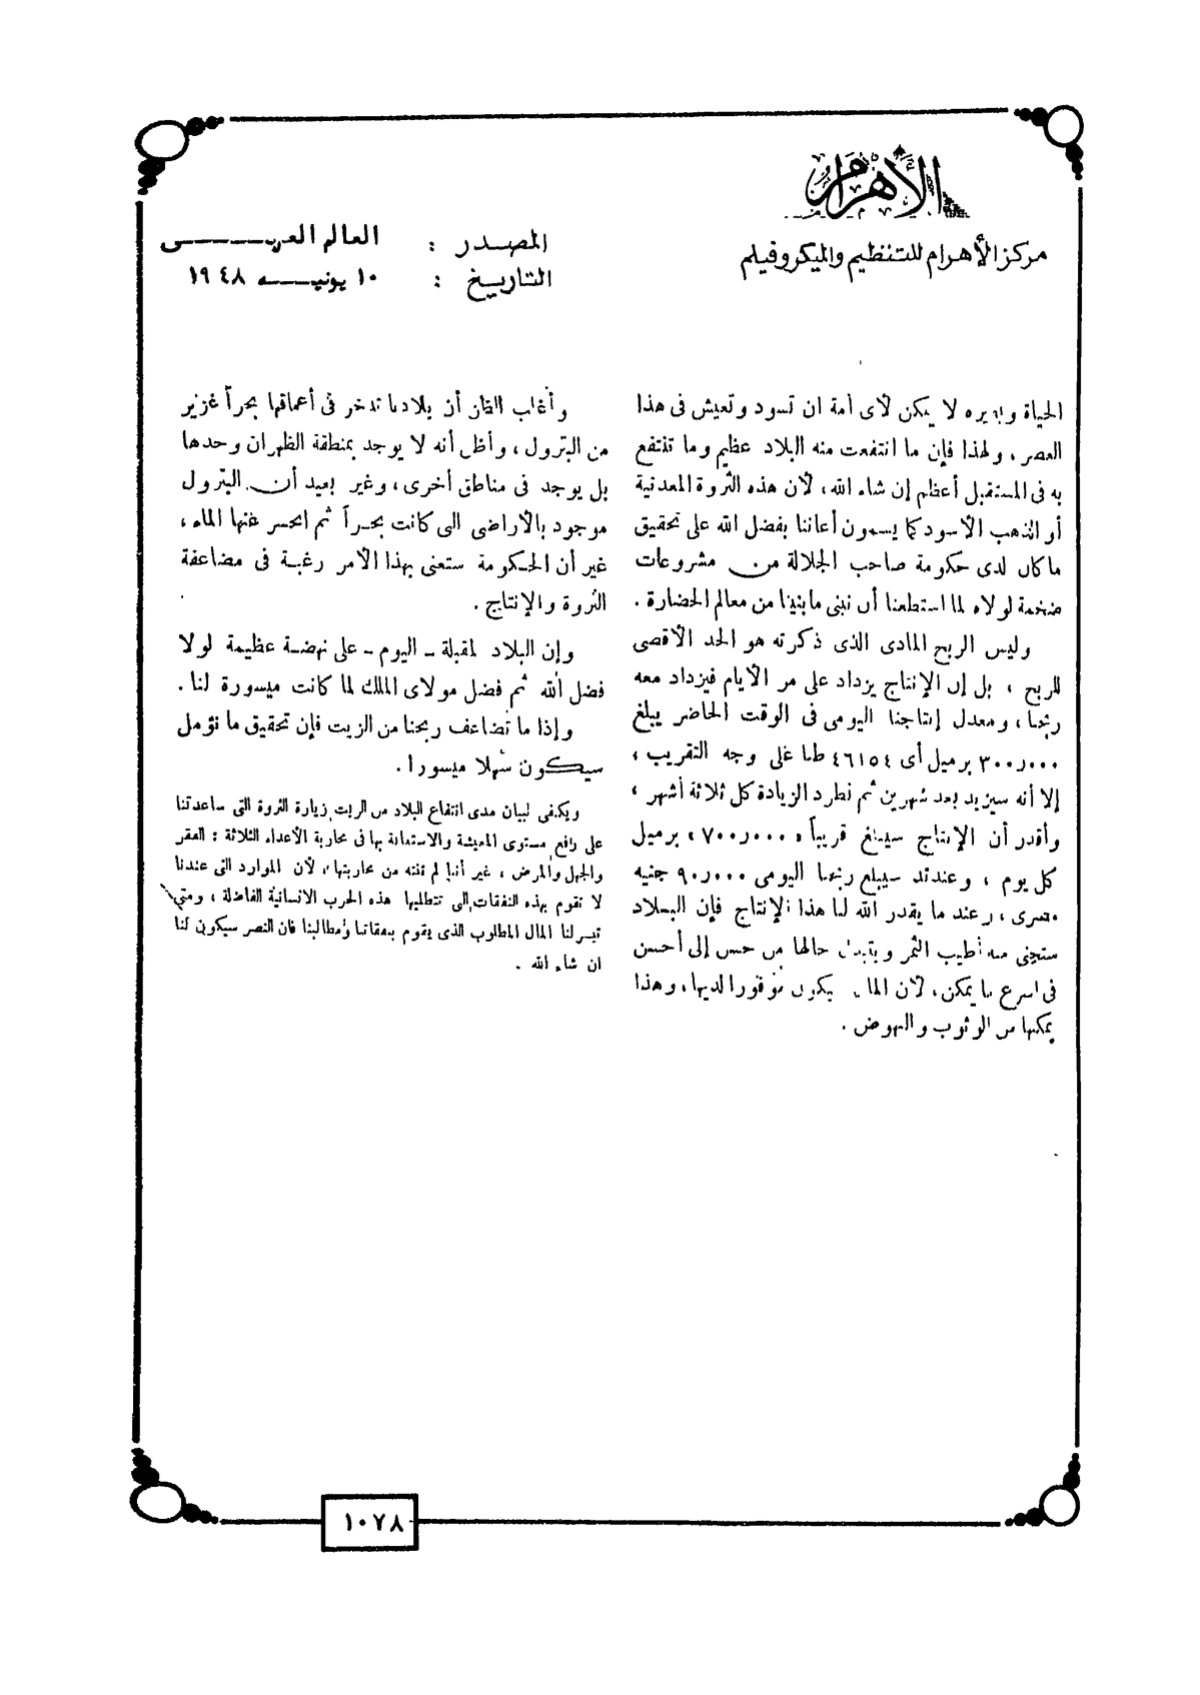 الأهرام
مركز الأهرام للتنظيم والميكروفيلم
المصدر : العالم العربى
التاريخ : ١٠ يونيه ١٩٤٨
الحياة وبغيره لا يمكن لأى أمة ان تسود وتعيش فى هذا
العصر ، ولهذا فإن ما انتفعت منه البلاد عظيم وما تنتفع
به فى المستقبل أعظم إن شاء الله ، لأن هذه الثروة المعدنية
أو الذهب الأسود كما يسمون أعاننا بفضل الله على تحقيق
ما كان لدى حكومة صاحب الجلالة من مشروعات
ضخمة لولاه لما استطعنا أن نبنى ما بنينا من معالم الحضارة .
وليس الربح المادى الذى ذكرته هو الحد الأقصى
للربح ، بل إن الإنتاج يزداد على مر الأيام فيزداد معه
ربحنا ، ومعدل إنتاجنا اليومى فى الوقت الحاضر يبلغ
٣٠٠ر٠٠٠ برميل أى ٤٦١٥٤ طنا على وجه التقريب ،
إلا أنه سيزيد بعد شهرين ثم نطرد الزيادة كل ثلاثة أشهر ،
وأقدر أن الإنتاج سيبلغ قريباً « ٧٠٠ر٠٠٠ » برميل
كل يوم ، وعندئذ سيبلغ ربحنا اليومى ٩٠ر٠٠٠ جنيه
مصرى ، وعند ما يقدر الله لنا هذا الإنتاج فإن البلاد
ستجنى منه أطيب الثمر ويتبدل حالها من حسن إلى أحسن
فى أسرع ما يمكن ، لأن المال يكون موفورا لديها ، وهذا
يمكنها من الوثوب والنهوض .
وأغلب الظن أن بلادنا تدخر فى أعماقها بحراً غزير
من البترول ، وأظن أنه لا يوجد بمنطقة الظهران وحدها
بل يوجد فى مناطق أخرى ، وغير بعيد أن البترول
موجود بالأراضى التى كانت بحراً ثم انحسر عنها الماء ،
غير أن الحكومة ستعنى بهذا الأمر رغبة فى مضاعفة
الثروة والإنتاج .
وإن البلاد لمقبلة ـ اليوم ـ على نهضة عظيمة لولا
فضل الله ثم فضل مولاى الملك لما كانت ميسورة لنا .
وإذا ما تضاعف ربحنا من الزيت فإن تحقيق ما نؤمل
سيكون سهلا ميسورا .
ويكفى لبيان مدى انتفاع البلاد من الزيت زيارة الثروة التى ساعدتنا
على رفع مستوى المعيشة والاستعانة بها فى محاربة الأعداء الثلاثة : الفقر
والجهل والمرض ، غير أننا لم ننته من محاربتها ، لأن الموارد التى عندنا
لا تقوم بهذه النفقات التى تتطلبها هذه الحرب الانسانية الفاضلة ، ومتى
تيسر لنا المال المطلوب الذى يقوم بنفقاتنا ومطالبنا فان النصر سيكون لنا
ان شاء الله .
١٠٧٨